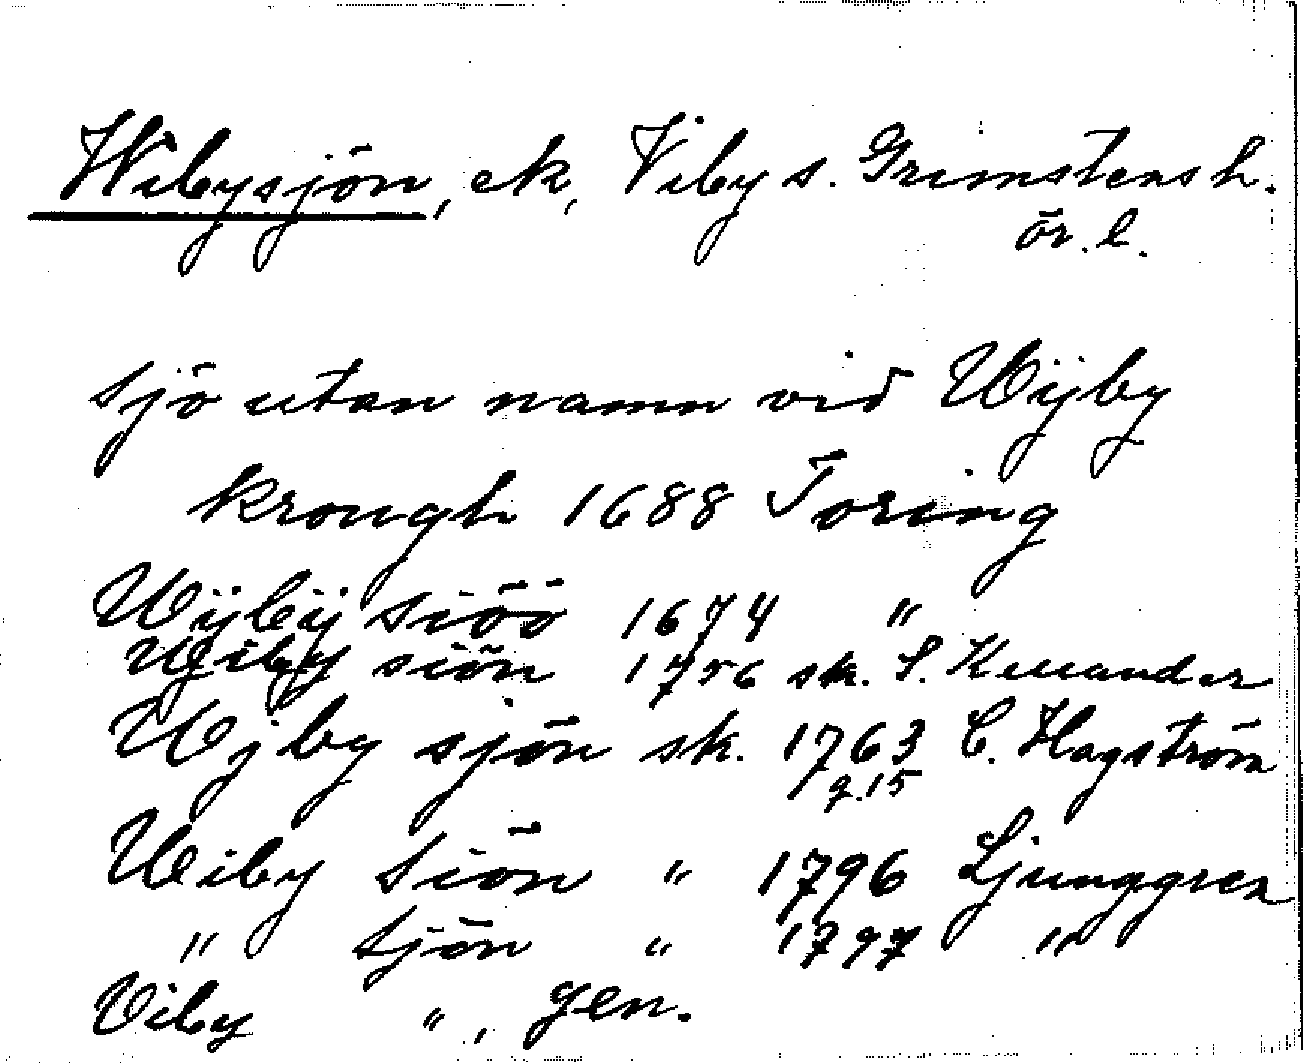 Wibysjön, ek, Viby s. Grimstens h.
ör. l.
sjö utan namn vid Wijby
krough 1688 Toring
Wÿbÿ siöö 1674 "
Wiby siön 1756 sk. S. Kelander
Wjby sjön sk. 1763 C. Hagström
q. 15
Wiby Siön " 1796 Ljunggren
" Sjön " 1797 "
Viby ", gen.